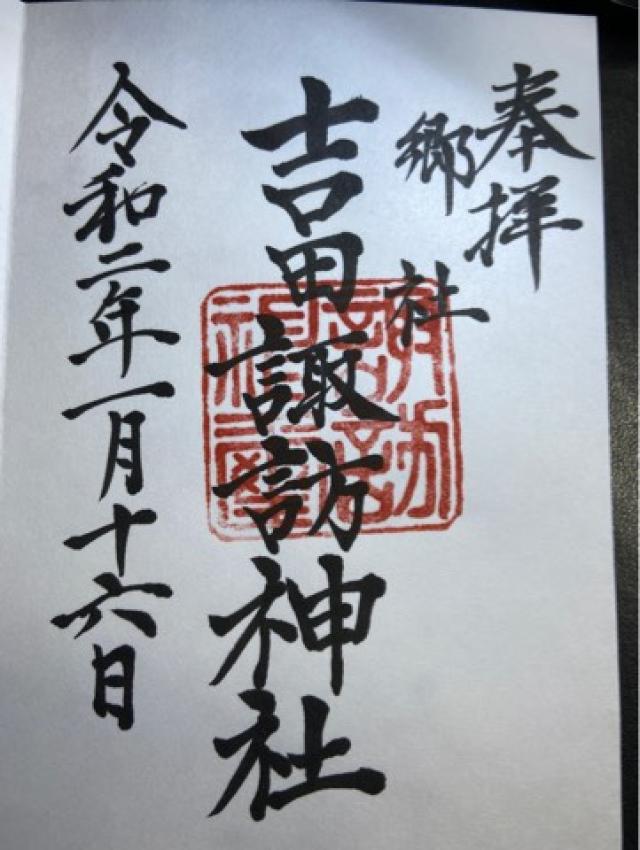 奉拝
郷社
吉田諏訪神社
令和二年一月十六日